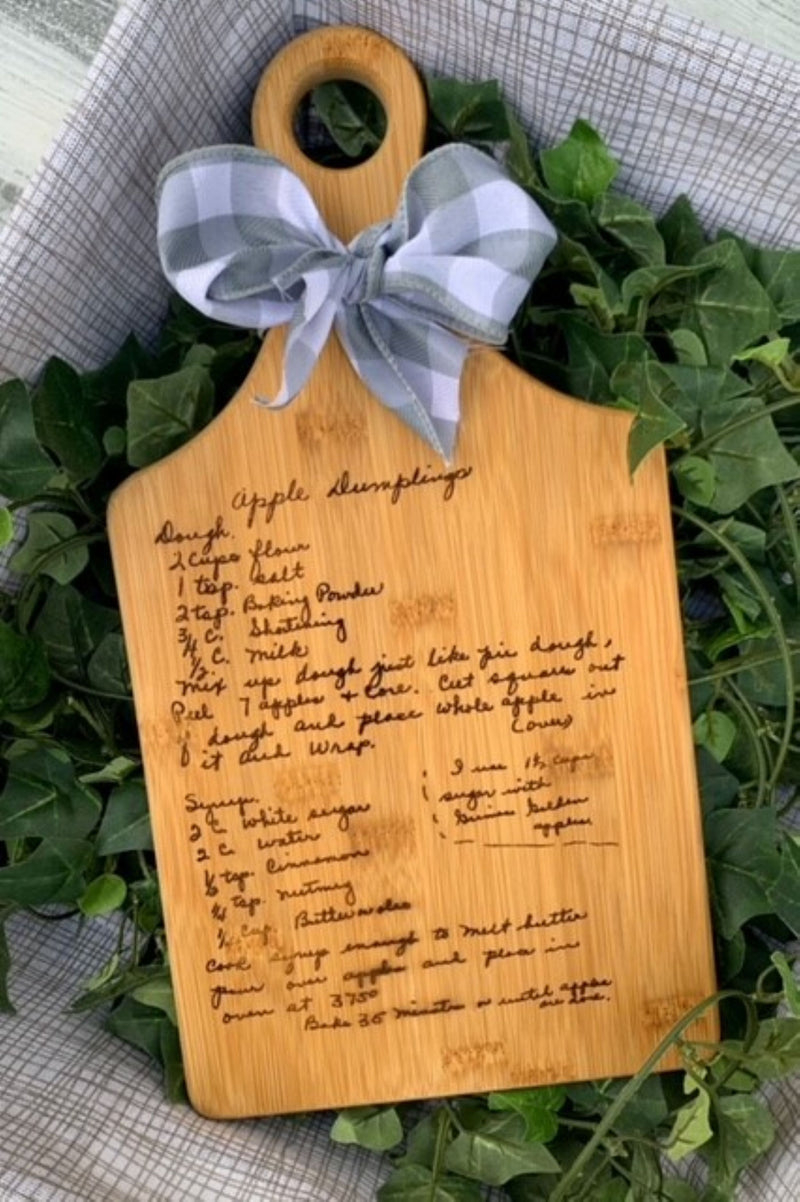 Apple Dumplings
Dough.
2 cups flour
1 tsp. salt
2 tsp. Baking Powder
3/4 C. Shortening
1/2 C. Milk
Mix up dough just like pie dough,
Peel 7 apples + core. Cut square out
dough and place whole apple in
it and wrap.
(over)
Syrup.
2 C. white sugar
2 C. water
tsp. Cinnamon
1/4 tsp. nutmeg
1/4 Cup. Butter
I use 1 1/2 cups
sugar with
Golden
apples
Cook syrup enough to melt butter
pour over apples and place in
oven at 375°
Bake 35 minutes or until apples
are done.